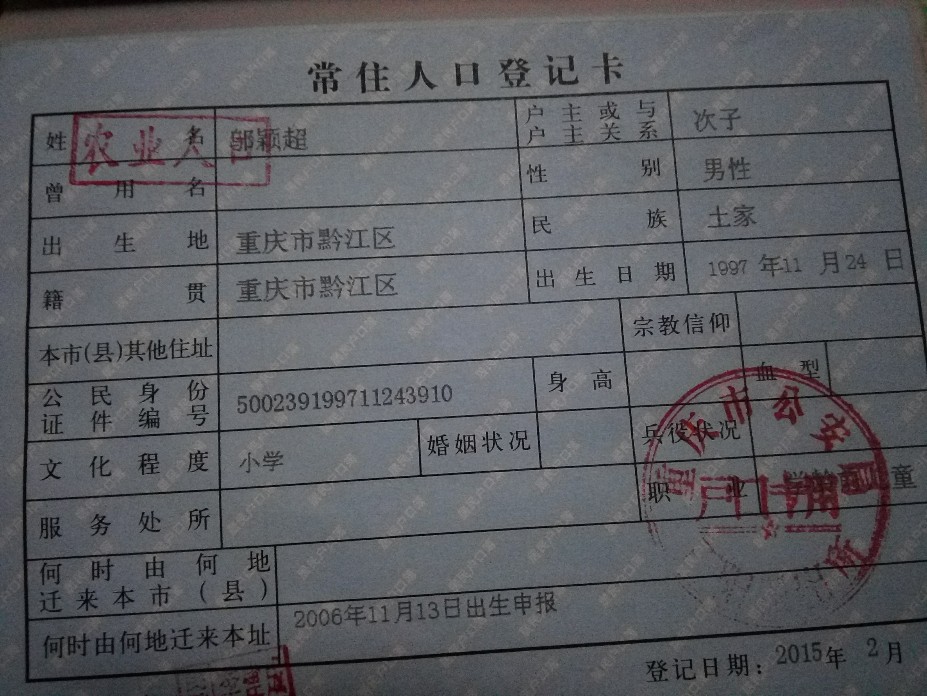 常住人口登记卡
姓名 邬颖超 户主或与户主关系 次子
农业人口
曾用名 性别 男性
出生地 重庆市黔江区 民族 土家
籍贯 重庆市黔江区 出生日期 1997年11月24日
本市(县)其他住址 宗教信仰
公民身份证件编号 500239199711243910 身高 血型
文化程度 小学 婚姻状况 兵役状况
服务处所 职业 学龄前儿童
重庆市公安局
户口专用
何时由何地迁来本市(县)
何时由何地迁来本址 2006年11月13日出生申报
登记日期：2015年2月